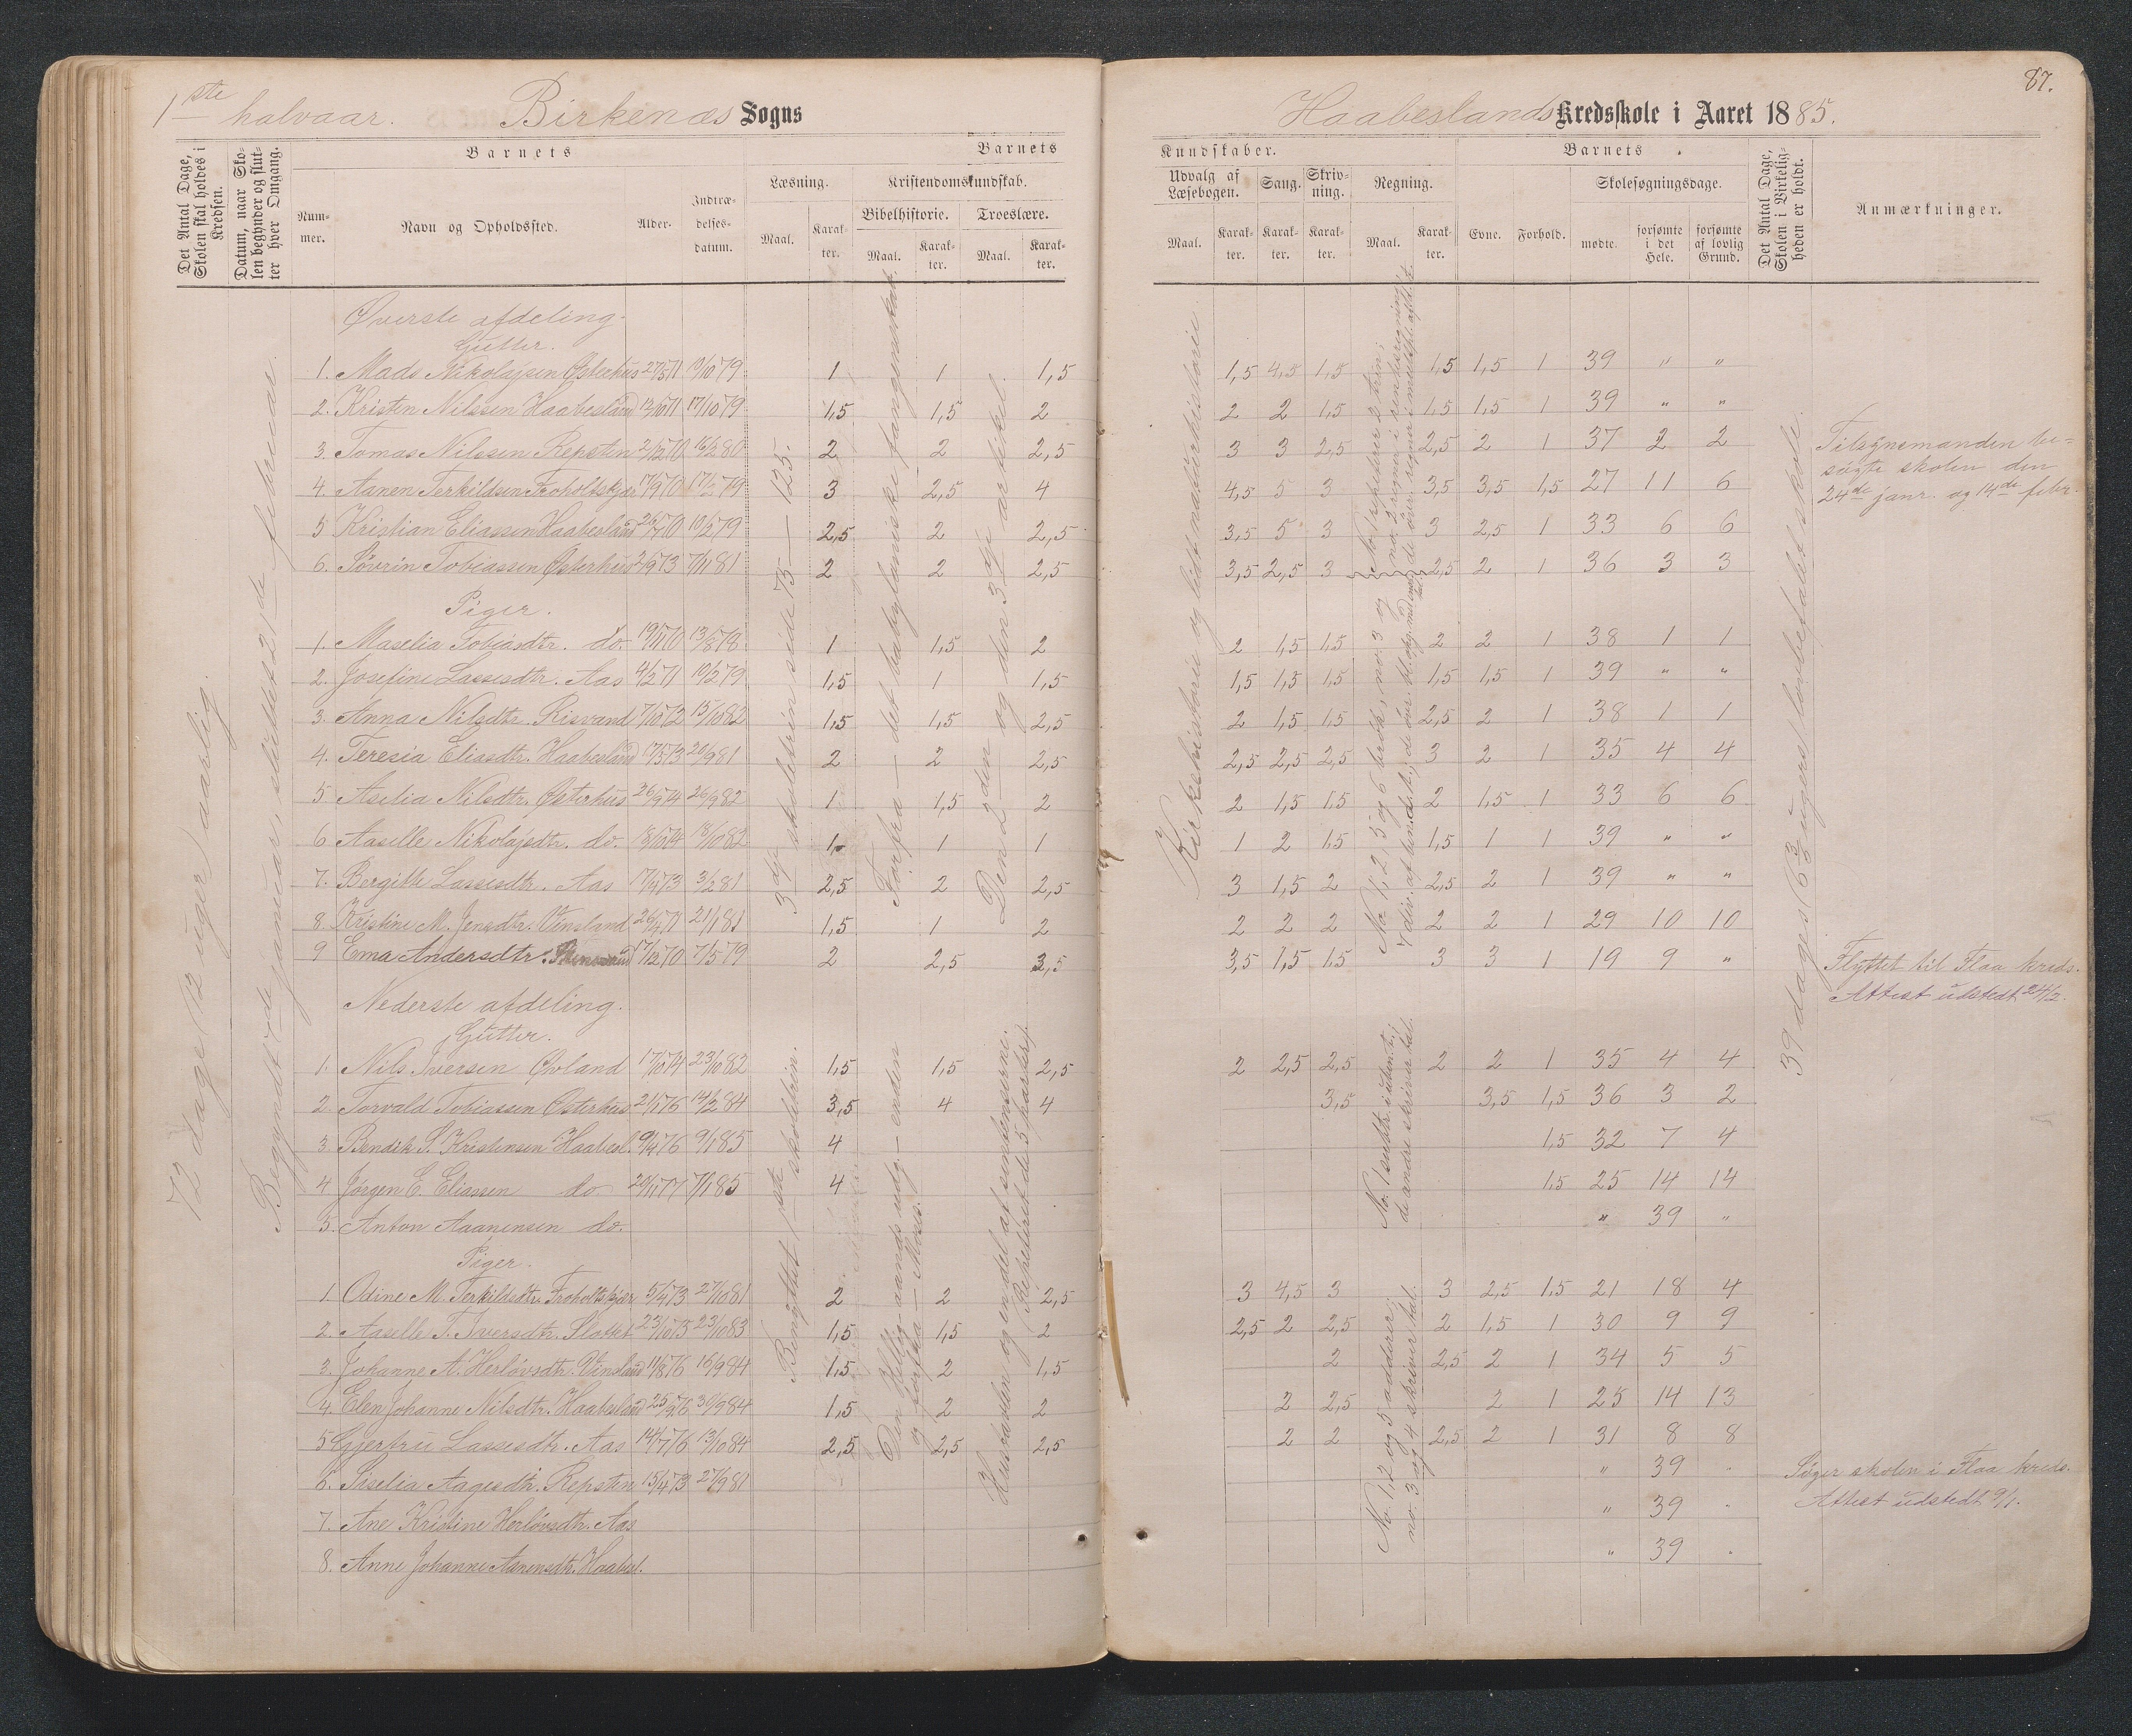 87.
1ste halvaar. Birkenæs Sogns
Haabeslands Kredsskole i Aaret 1885.
Det Antal Dage, Skolen skal holdes i Kredsen.
Datum, naar Skolen begynder og slutter hver Omgang.
Barnets
Nummer.
Navn og Opholdssted.
Alder.
Indtrædelsesdatum.
Barnets
Læsning.
Maal.
Karakter.
Kristendomskundskab.
Bibelhistorie.
Maal.
Karakter.
Troeslære.
Maal.
Karakter.
Kundskaber.
Udvalg af Læsebogen.
Maal.
Karakter.
Sang.
Karakter.
Skrivning.
Karakter.
Regning.
Maal.
Karakter.
Barnets
Evne.
Forhold.
Skolesøgningsdage.
mødte.
forsømte i det Hele.
forsømte af lovlig Grund.
Det Antal Dage, Skolen i Virkeligheden er holdt.
Anmærkninger.
72 dage (12 uger) aarlig.
Begyndt 7de januar, sluttet 21de februar.
3die skoletrin side 75 — 125.
Forfra — det babylaniske fangenskab.
Den 2den og den 3die artikel.
Kirkehistorie og lidt naturhistorie.
39 dage (6 3/6 uger) lovbefalet skole.
Øverste afdeling.
Gutter.
1. Mads Nikolajsen Østerhus 27/5 71 17/10 79 1 1 1,5 1,5 4,5 1,5 1,5 1,5 1 39 " "
2. Kristen Nilssen Haabesland 13/10 71 17/10 79 1,5 1,5 2 2 2 1,5 1,5 1,5 1 39 " "
3. Tomas Nilssen Repsten 2/12 70 16/2 80 2 2 2,5 3 3 2,5 2,5 2 1 37 2 2
4. Aanen Terkildsen Froholtskjær 17/9 70 17/2 79 3 2,5 4 4,5 5 3 3,5 3,5 1,5 27 11 6
5 Kristian Eliassen Haabesland 26/7 70 10/2 79 2,5 2 2,5 3,5 5 3 3 2,5 1 33 6 6
6. Søvrin Tobiassen Østerhus 2/9 73 7/1 81 2 2 2,5 3,5 2,5 3 2,5 2 1 36 3 3
Tilsynsmanden besøgte skolen den 24de janr. og 14de febr.
Piger.
1. Maselia Tobiasdtr. do. 19/11 70 13/8 78 1 1,5 2 2 1,5 1,5 2 2 1 38 1 1
2. Josefine Lassesdtr. Aas 4/2 71 10/2 79 1,5 1 1,5 1,5 1,5 1,5 1,5 1,5 1 39 " "
3. Anna Nilsdtr. Risvand 7/10 72 15/10 82 1,5 1,5 2,5 2 1,5 1,5 2,5 2 1 38 1 1
4. Teresia Eliasdtr. Haabesland 17/5 73 20/9 81 2 2 2,5 2,5 2,5 2,5 3 2 1 35 4 4
5 Aselia Nilsdtr. Østerhus 26/9 74 26/9 82 1 1,5 2 2 1,5 1,5 2 1,5 1 33 6 6
6 Aaselle Nikolajsdtr. do. 18/10 74 18/10 82 1 1 1 1 2 1,5 1,5 1 1 39 " "
7. Bergitte Lassesdtr. Aas 17/4 73 3/2 81 2,5 2 2,5 3 1,5 2 2,5 2 1 39 " "
8. Kristine M. Jensdtr. Vinsland 26/4 71 21/1 81 1,5 1 2 2 2 2 2 2 1 29 10 10
9 Ema Andersdtr. 17/12 70 7/5 79 2 2,5 3,5 3,5 1,5 1,5 3 3 1 19 9 "
Flyttet til Flaa kreds. Attest udstedt 24/2.
Nederste afdeling.
Gutter.
1. Nils Iversen Øvland 17/10 74 23/10 82 1,5 1,5 2,5 2 2,5 2,5 2 2 1 35 4 4
2 Torvald Tobiassen Østerhus 21/1 76 14/2 84 3,5 4 4 3,5 3,5 1,5 36 3 2
3 Bendik S. Kristensen Haabesl. 9/4 76 9/1 85 4 1,5 32 7 4
4 Jørgen E. Eliassen do 20/1 77 7/1 85 4 1,5 25 14 14
5. Anton Aanensen do. " 39 "
Piger.
1 Odine M. Terkildsdtr. Froholtskjær 5/4 73 27/10 81 2 2 2,5 3 4,5 3 3 2,5 1,5 21 18 4
2. Aaselle T. Iversdtr. Slottet 23/10 73 23/10 83 1,5 1,5 2 2,5 2 2,5 2 1,5 1 30 9 9
3. Johanne A. Herlövsdtr. Vinsland 11/8 76 16/9 84 1,5 2 1,5 2 2,5 2 1 34 5 5
4. Elen Johanne Nilsdtr. Haabesland 25/9 76 30/9 84 1,5 2 2 2 2,5 2 1 25 14 13
5 Gjertru Lassesdtr. Aas 14/7 76 13/10 84 2,5 2,5 2,5 2 2 2,5 2 1 31 8 8
6. Siselia Aagesdtr. Repsten 15/4 73 27/9 81 " 39
7. Ane Kristine Herlövsdtr. Aas " 39
8. Anne Johanne Aanensdtr. Haabesl. " 39
Søger skolen i Flaa kreds. Attest udstedt 9/1.
Benyttet 1ste skoletrin.
Den Hellig-aands udg. — enden og forfra — Moses.
Kristendom og en del af sandhederne. (Repeteret de 5 parter).
No. 1, 2 og 5 adderer. no. 3 og 4 skriver tal.
de andre skriver tal.